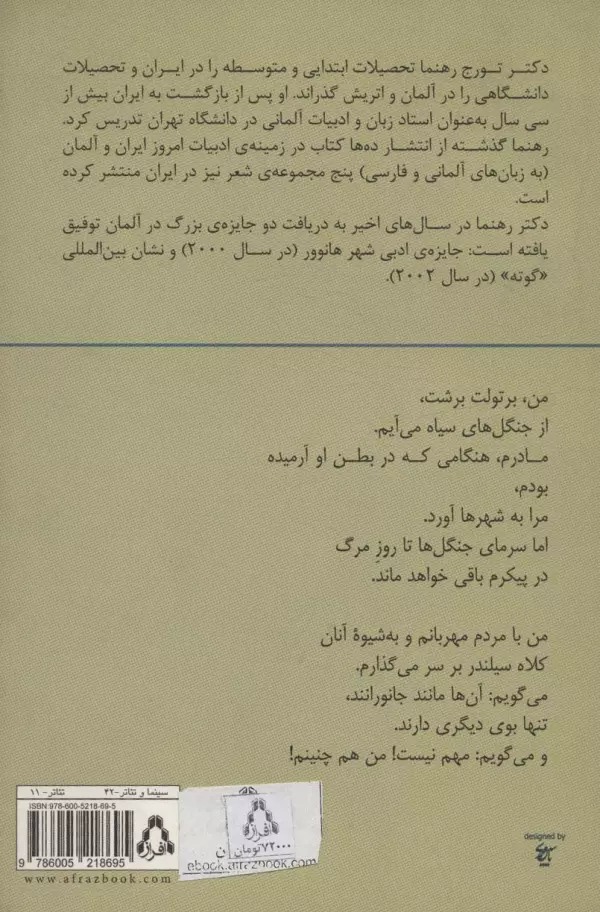 دکتر تورج رهنما تحصیلات ابتدایی و متوسطه را در ایران و تحصیلات
دانشگاهی را در آلمان و اتریش گذراند. او پس از بازگشت به ایران بیش از
سی سال به‌عنوان استاد زبان و ادبیات آلمانی در دانشگاه تهران تدریس کرد.
رهنما گذشته از انتشار ده‌ها کتاب در زمینه‌ی ادبیات امروز ایران و آلمان
(به زبان‌های آلمانی و فارسی) پنج مجموعه‌ی شعر نیز در ایران منتشر کرده
است.
دکتر رهنما در سال‌های اخیر به دریافت دو جایزه‌ی بزرگ در آلمان توفیق
یافته است: جایزه‌ی ادبی شهر هانوور (در سال ۲۰۰۰) و نشان بین‌المللی
«گوته» (در سال ۲۰۰۲).
من، برتولت برشت،
از جنگل‌های سیاه می‌آیم.
مادرم، هنگامی که در بطن او آرمیده
بودم،
مرا به شهرها آورد.
اما سرمای جنگل‌ها تا روزِ مرگ
در پیکرم باقی خواهد ماند.
من با مردم مهربانم و به‌شیوهٔ آنان
کلاه سیلندر بر سر می‌گذارم.
می‌گویم: آن‌ها مانند جانورانند،
تنها بوی دیگری دارند.
و می‌گویم: مهم نیست! من هم چنینم!
سینما و تئاتر-۴۲ تئاتر-۱۱
ISBN:978-600-5218-69-5
9 786005 218695
www.afrazbook.com
افراز
۷۲۰۰۰تومان
ebook.afrazbook.com
designed by